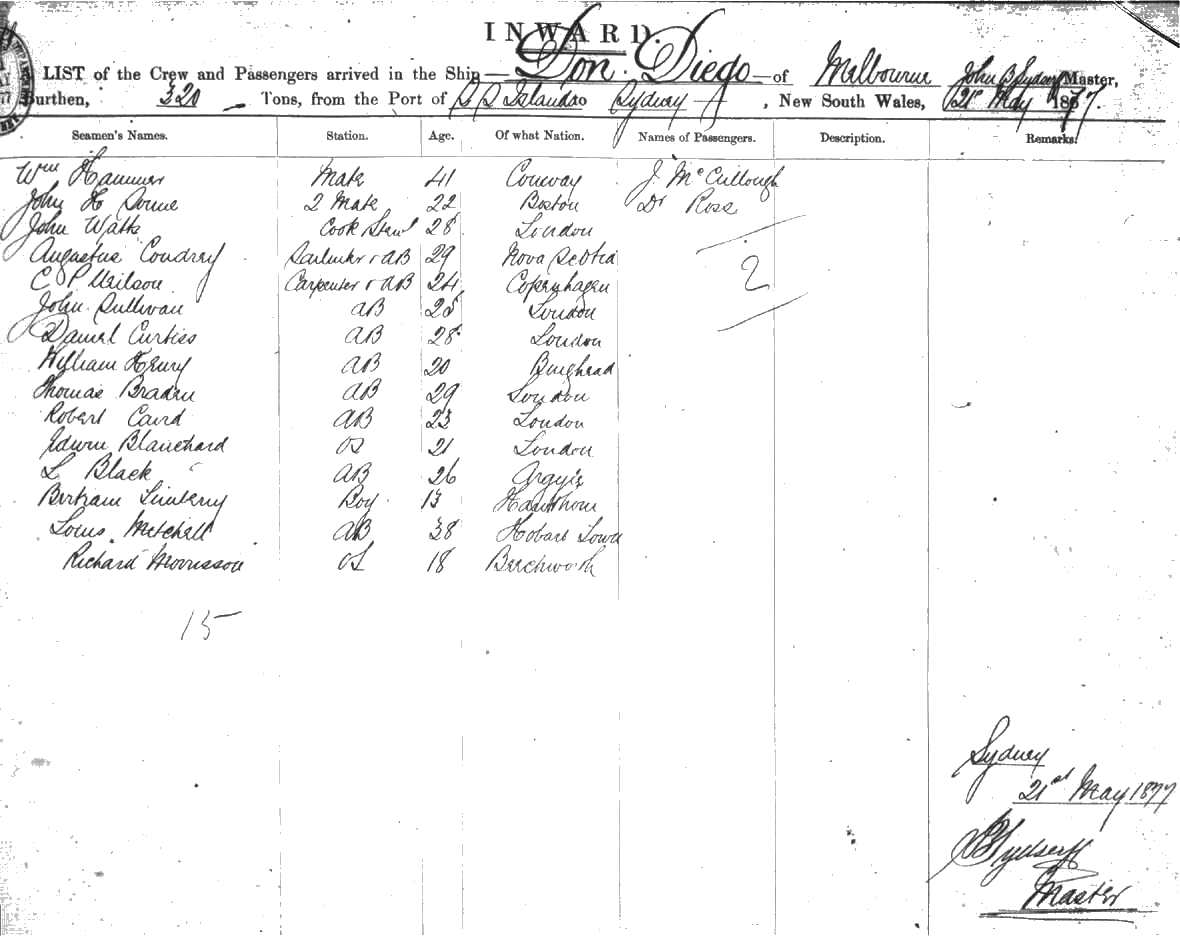 INWARD.
LIST of the Crew and Passengers arrived in the Ship — Don Diego — of Melbourne John B Master,
Burthen, 320 Tons, from the Port of Sydney, New South Wales, 21st May 1877.
Seamen's Names. Station. Age. Of what Nation. Names of Passengers. Description. Remarks.
Wm Hammer Mate 41 Conway J. McCullough
John H 2 Mate 22 Boston Dr Ross
John Watts Cook Stewd 28 London
Augustus Condray & AB 29 Nova Scotia
C P Neilson Carpenter & AB 24 Copenhagen 2
John Sullivan AB 25 London
Daniel Curtiss AB 28 London
William Henry AB 20 Burghead
Thomas Braden AB 29 London
Robert Caird AB 23 London
Edwin Blanchard OS 21 London
L Black AB 26 Argyle
Bertram Boy 13 Hawthorn
Louis Mitchell AB 38 Hobart Town
Richard Morrisson OS 18 Beechworth
15
Sydney
21st May 1877
Master